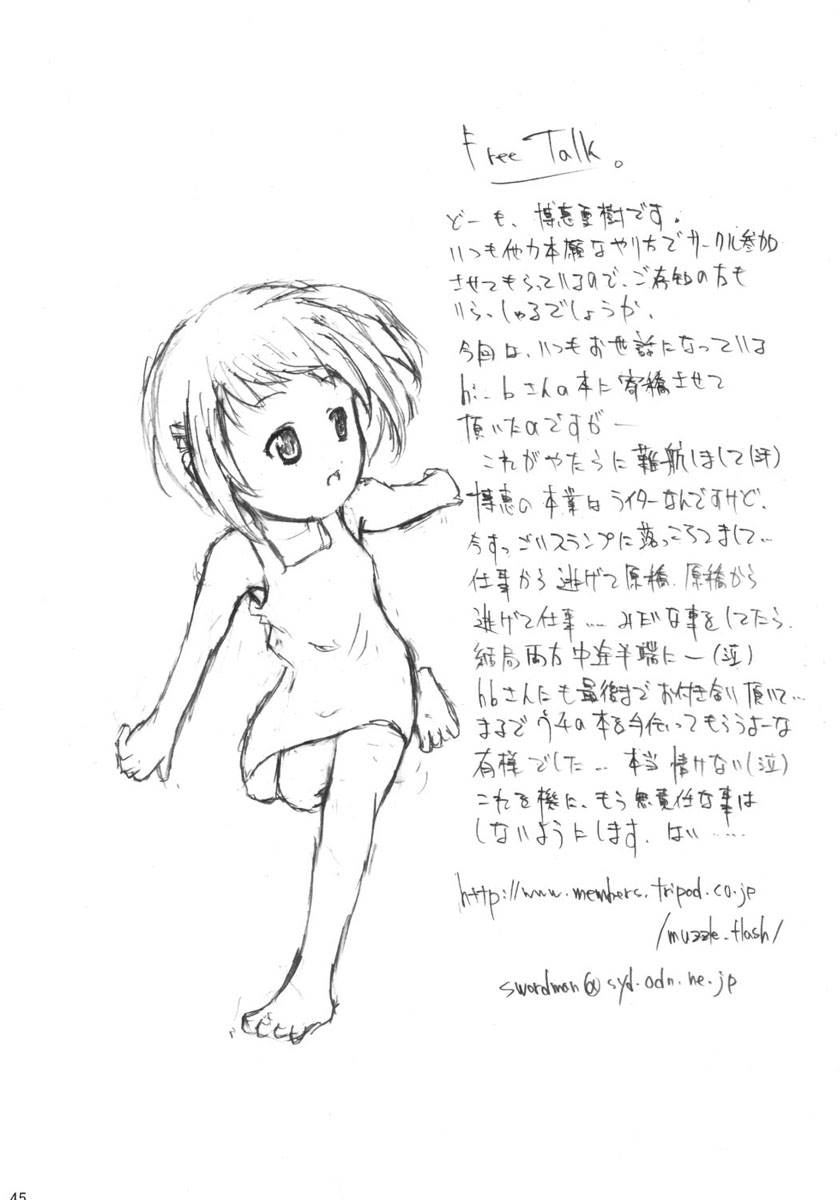 Free Talk。
どーも、博恵亜樹です。
いつも他力本願なやり方でサークル参加
させてもらっているので、ご存知の方も
いらっしゃるでしょうか。
今回は、いつもお世話になっている
さんの本に寄稿させて
頂いたのですがー
これがやたらに難航しまして(汗)
博恵の本業はライターなんですけど、
今すっごいスランプに落っこちてまして…
仕事から逃げて原稿、原稿から
逃げて仕事…みたいな事をしてたら、
結局両方中途半端にー(泣)
hbさんにも最後まで お付き合い頂いて…
まるでウチの本を手伝ってもらうよーな
有様でした… 本当 情けない(泣)
これを機に、もう無責任な事は
しないようにします。はい……
http://www.members.tripod.co.jp
/muzzle_flash/
swordman@syd.odn.ne.jp
45